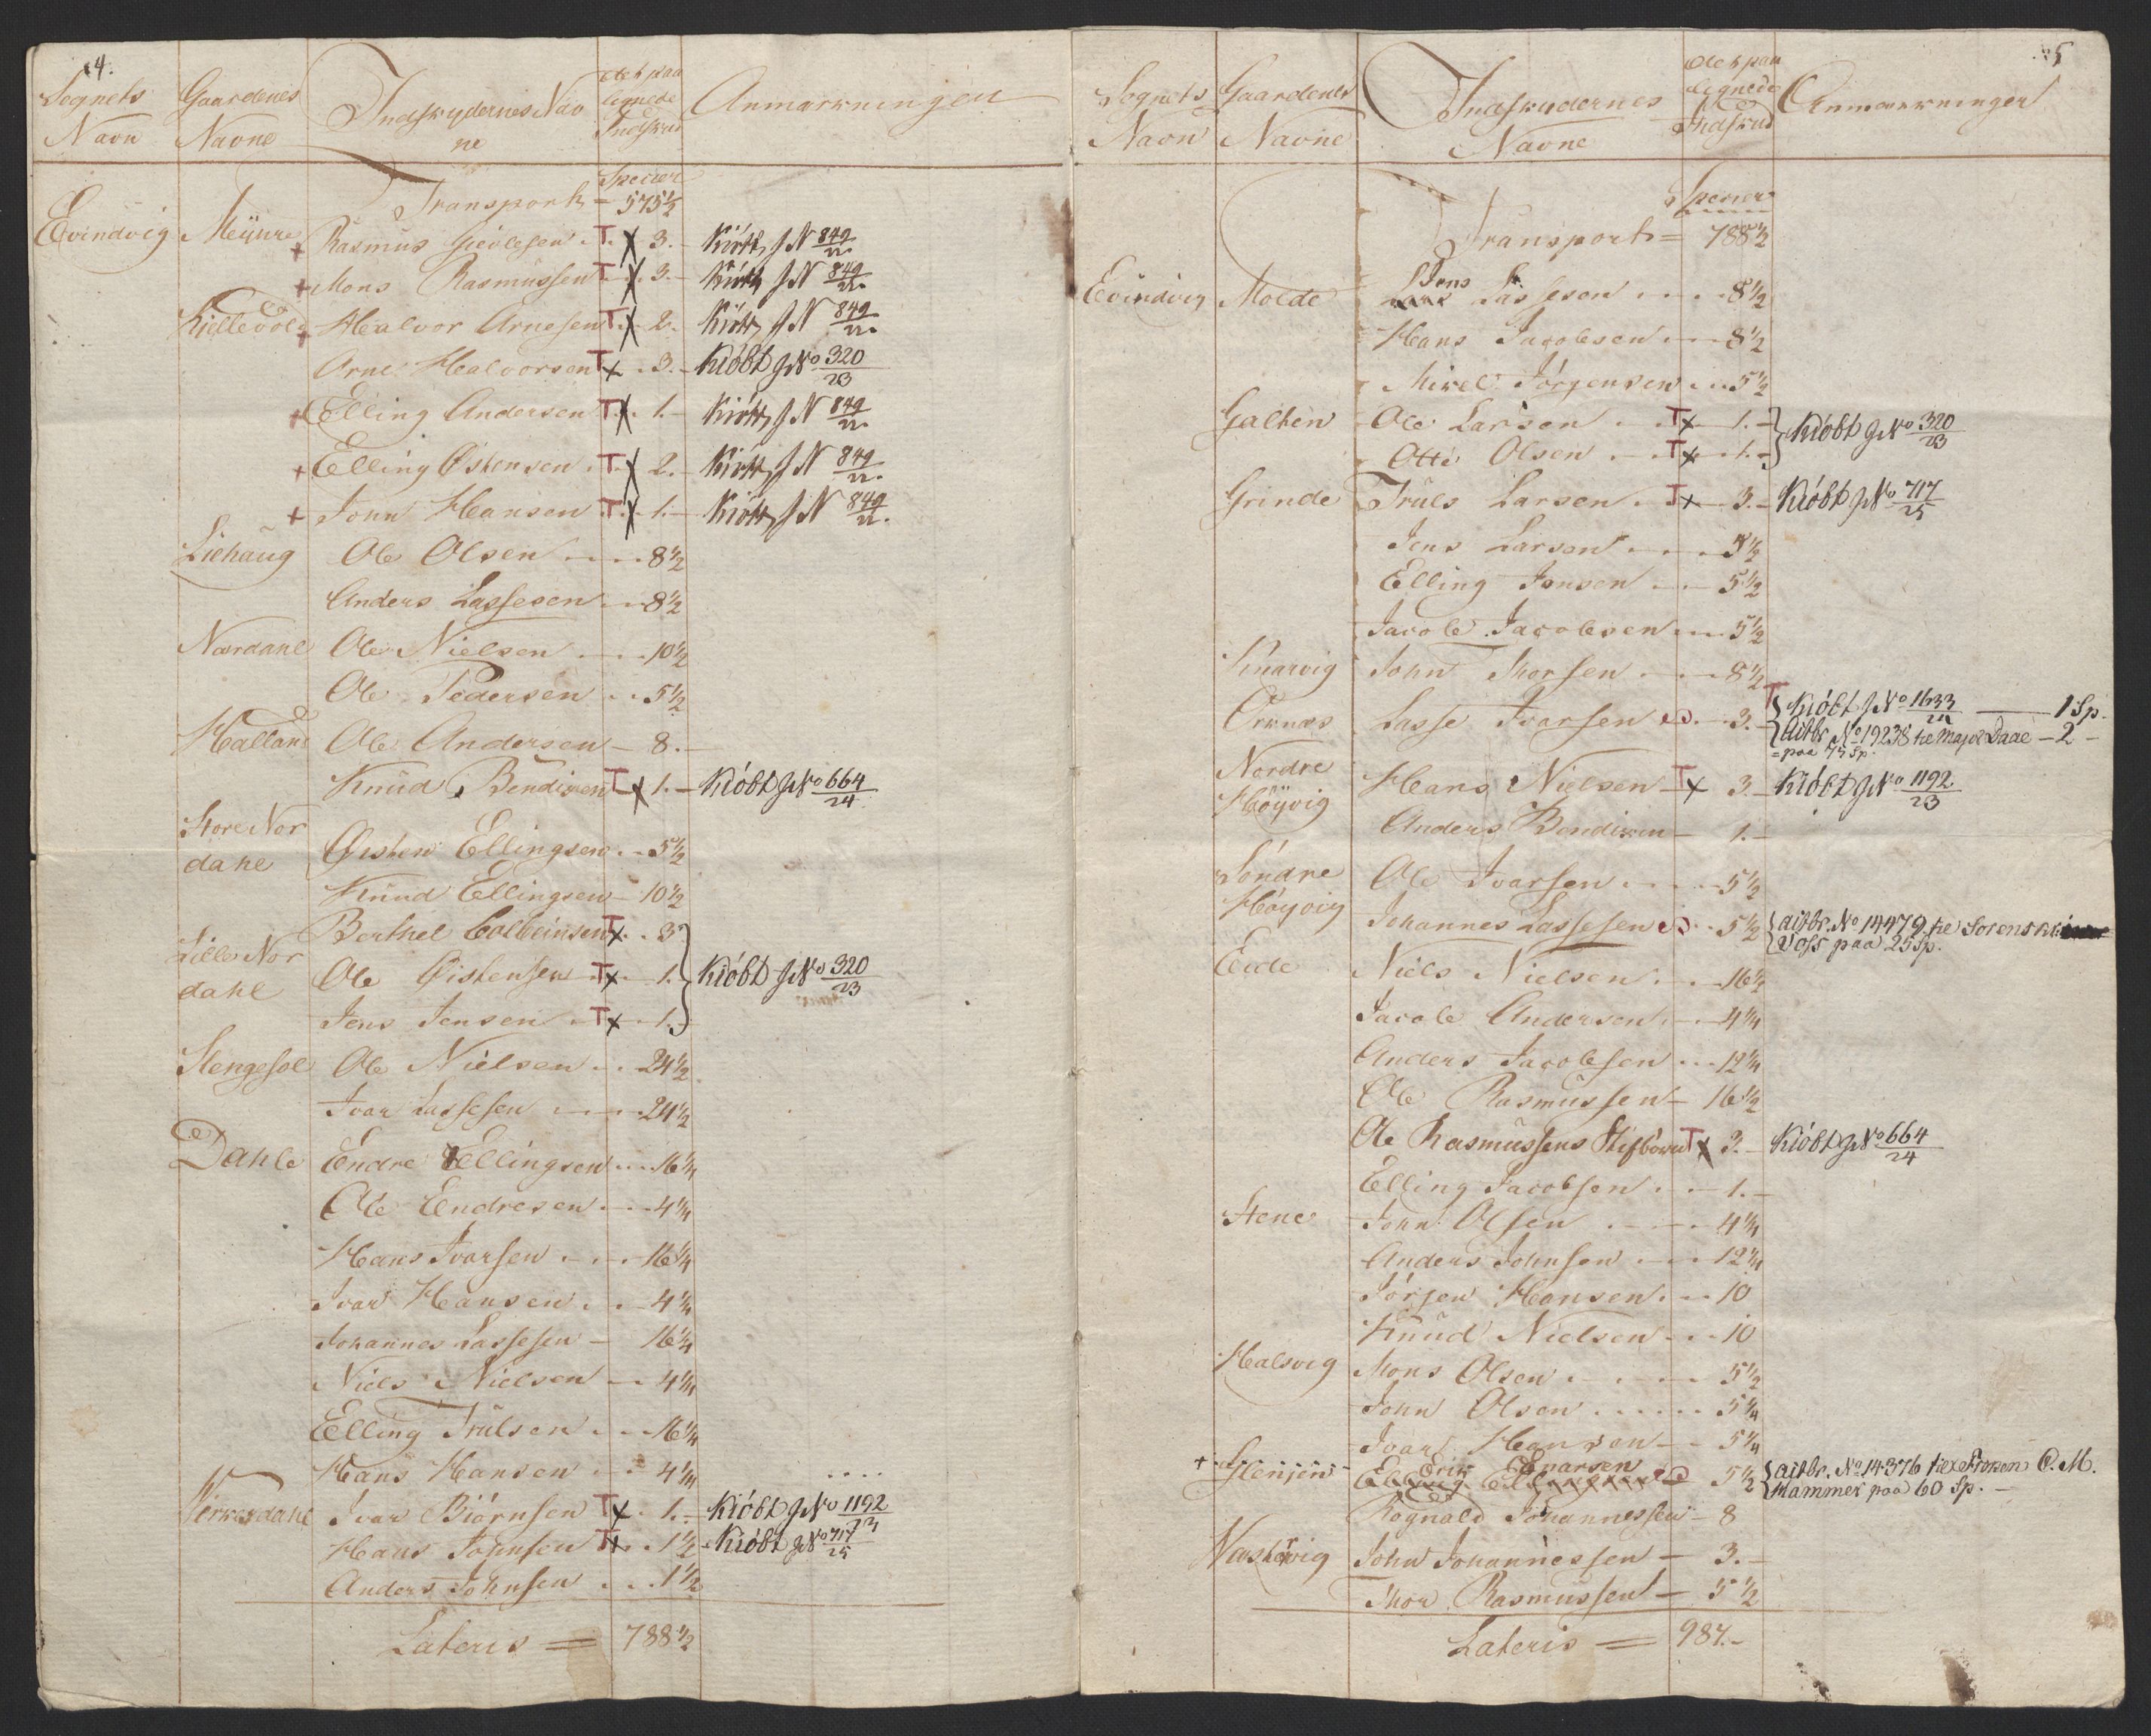 4.
Sognets Navn | Gaardenes Navne | Indskydernes Navne | det paalignede Indskud | Anmærkninger
Specier
Transport = 575½
Evindvig | Meÿure | + Rasmus Gievlesen T. X 3. | Kiöbt J N 849/22.
+ Mons Rasmussen T X 3. | Kiöbt J N 849/22.
Kiellevold | + Halvor Arnesen T X 2. | Kiöbt J N 849/22.
Arne Halvorsen T x 3. | Kiöbt J No 320/23
+ Elling Andersen T X 1. | Kiöbt J N 849/22.
+ Elling Östensen T X 2. | Kiöbt J N 849/22.
+ John Hansen T X 1. | Kiöbt J N 849/22.
Liehaug | Ole Olsen 8½
Anders Lassesen 8½
Nordahl | Ole Nielsen 10½
Ole Pedersen 5½
Halland | Ole Andersen 8.
Knud Bendixen T x 1. | Kiöbt J No 664/24
Store Nordahl | Östen Ellingsen 5½
Knud Ellingsen 10½
Lille Nordahl | Berthel Colbeinsen T x 3.
Ole Östensen T x 1. | Kiöbt J No 320/23
Jens Jensen T x 1.
Stengesol | Ole Nielsen 24½
Ivar Lassesen 24½
Dahle | Endre Ellingsen 16¼
Ole Endresen 4¼
Hans Ivarsen 16¼
Ivar Hansen 4¼
Johannes Lassesen 16¼
Niels Nielsen 4¼
Elling Trulsen 16¼
Hans Hansen 4¼
Virkesdahl | Ivar Biörnsen T x 1. | Kiöbt J No 1192/23
Hans Johnsen T x 1½ | Kiöbt J No 717/25
Anders Johnsen 1½
Lateris = 788½
5
Sognets Navn | Gaardenes Navne | Indskydernes Navne | det paalignede Indskud | Anmærkninger
Specier
Transport = 788½
Evindvig | Molde | Jens Lassesen 8½
Hans Jacobsen 8½
Mikel Jörgensen 5½
Galten | Ole Larsen T x 1. | Kiöbt J No 320/23
Otte Olsen T x 1.
Grinde | Truls Larsen T x 3. | Kiöbt J No 717/25
Jens Larsen 5½
Elling Jonsen 5½
Jacob Jacobsen 5½
Knarvig | John Thorsen 8½
Örknæs | Lasse Ivarsen 3. | T Kiöbt J No 1633/21 — 1 Sp.
Aitbr. No 19238 til Major Daae — 2 —
paa 75 Sp.
Nordre Höyvig | Hans Nielsen T x 3. | Kiöbt J No 1192/23
Anders Bendixen 1.
Söndre Höyvig | Ole Ivarsen 5½
Johannes Lassesen 5½ | aitbr. No 14479 til Sorenskr:
Voss paa 25 Sp.
Eide | Niels Nielsen 16½
Jacob Andersen 4¼
Anders Jacobsen 12¼
Ole Rasmussen 16½
Ole Rasmussens Stifbörn T x 3. | Kiöbt J No 664/24
Elling Jacobsen 1.
Stene | John Olsen 4¼
Anders Johnsen 12¼
Jörgen Hansen 10
Knud Nielsen 10
Halsvig | Mons Olsen 5½
John Olsen 5¼
Ivar Hansen 5¼
+ Stenjen | Erik Evarsen 5½ | aitbr. No 14376 til Fröken C. M.
Hammer paa 60 Sp.
Rognald Johannessen 8
John Johannessen 3.
Thor Rasmussen 5½
Lateris = 987.